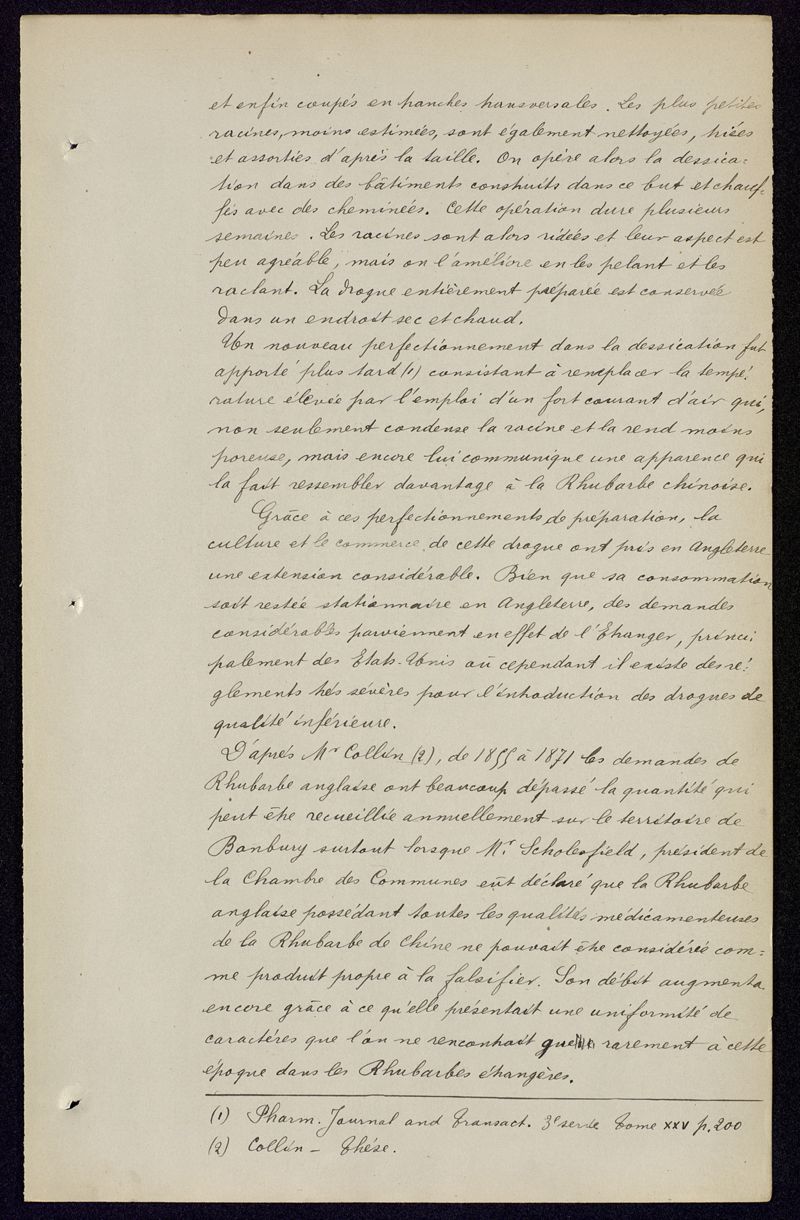 et enfin coupés en tranches transversales. Les plus petites
racines, moins estimées, sont également nettoyées, triées
et assorties d'après la taille. On opère alors la dessica=
tion dans des bâtiments construits dans ce but et chauf-
fés avec des cheminées. Cette opération dure plusieurs
semaines. Les racines sont alors ridées et leur aspect est
peu agréable, mais on l'améliore en les pelant et les
raclant. La drogue entièrement préparée est conservée
dans un endroit sec et chaud.
Un nouveau perfectionnement dans la dessication fut
apporté plus tard (1) consistant à remplacer la tempé-
rature élevée par l'emploi d'un fort courant d'air qui,
non seulement condense la racine et la rend moins
poreuse, mais encore lui communique une apparence qui
la fait ressembler davantage à la Rhubarbe chinoise.
Grâce à ces perfectionnements de préparation, la
culture et le commerce de cette drogue ont pris en Angleterre
une extension considérable. Bien que sa consommation
soit restée stationnaire en Angleterre, des demandes
considérables parviennent en effet de l'Etranger, princi
palement des Etats-Unis où cependant il existe des ré-
glements très sévères pour l'introduction des drogues de
qualité inférieure.
D'après Mr Collin (2), de 1855 à 1871 les demandes de
Rhubarbe anglaise ont beaucoup dépassé la quantité qui
peut être recueillie annuellement sur le territoire de
Banbury surtout lorsque Mr. Scholesfield, président de
la Chambre des Communes eût déclaré que la Rhubarbe
anglaise possédant toutes les qualités médicamenteuses
de la Rhubarbe de Chine ne pouvait être considérée com=
me produit propre à la falsifier. Son débit augmenta
encore grâce à ce qu'elle présentait une uniformité de
caractères que l'on ne rencontrait que rarement à cette
époque dans les Rhubarbes étrangères.
(1) Pharm. Journal and Transact. 3e série Tome XXV p. 200
(2) Collin – Thèse.